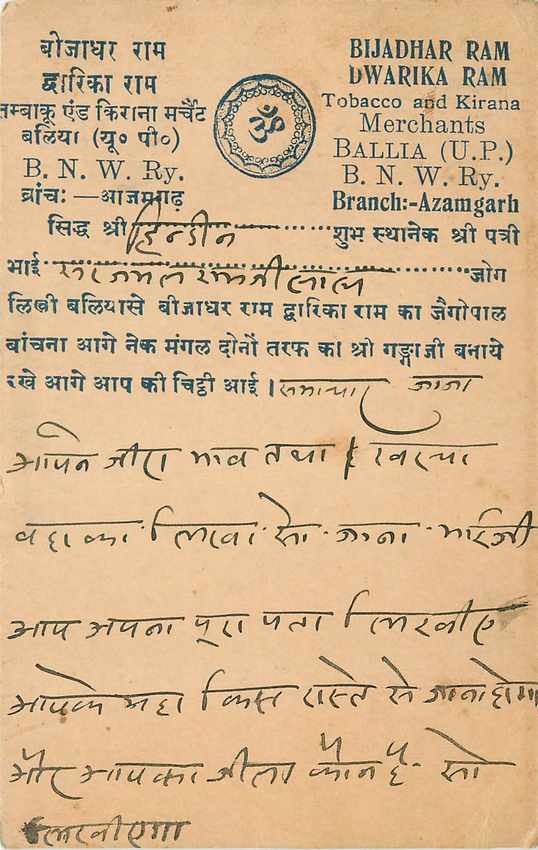 बीजाधर राम
द्वारिका राम
तम्बाकू एंड किराना मर्चेंट
बलिया (यू० पी०)
B. N. W. Ry.
ब्रांचः —आजमगढ़
ॐ
BIJADHAR RAM
DWARIKA RAM
Tobacco and Kirana
Merchants
BALLIA (U.P.)
B. N. W. Ry.
Branch:-Azamgarh
सिद्ध श्री हिन्डौन शुभ स्थानेक श्री पत्री
भाई सूरजमल रामजीलाल जोग
लिखी बलियासे बीजाधर राम द्वारिका राम का जैगोपाल
बांचना आगे नेक मंगल दोनों तरफ का श्री गङ्गाजी बनाये
रखे आगे आप की चिट्ठी आई । समाचार जाना
आपने जीरा भाव तथा
वहा का लिखा सो जाना भाईजी
आप अपना पूरा पता लिखीए
आपके यहा किस रास्ते से जाना होगा
और आपका जीला कौन है सो
लिखीएगा